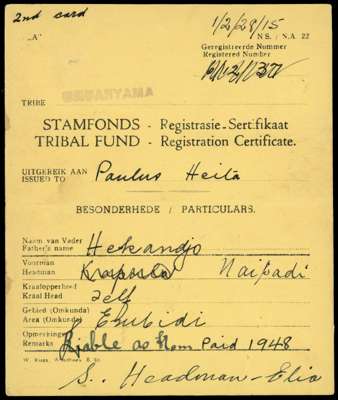 2nd card
„A"
1/2/29/15
N S. / N.A. 22
Geregistreerde Nommer
Registered Number
TRIBE
UKUANYAMA
STAMFONDS - Registrasie-Sertifikaat
TRIBAL FUND - Registration Certificate.
UITGEREIK AAN
ISSUED TO
Paulus Heita
BESONDERHEDE / PARTICULARS.
Naam van Vader
Father's name
Hekandjo
Voorman
Headman
Naipadi
Kraalopperhoof
Kraal Head
Self
Gebied (Omkunda)
Area (Omkunda)
Opmerkings
Remarks
Liable as from Paid 1948
S. Headman - Elia